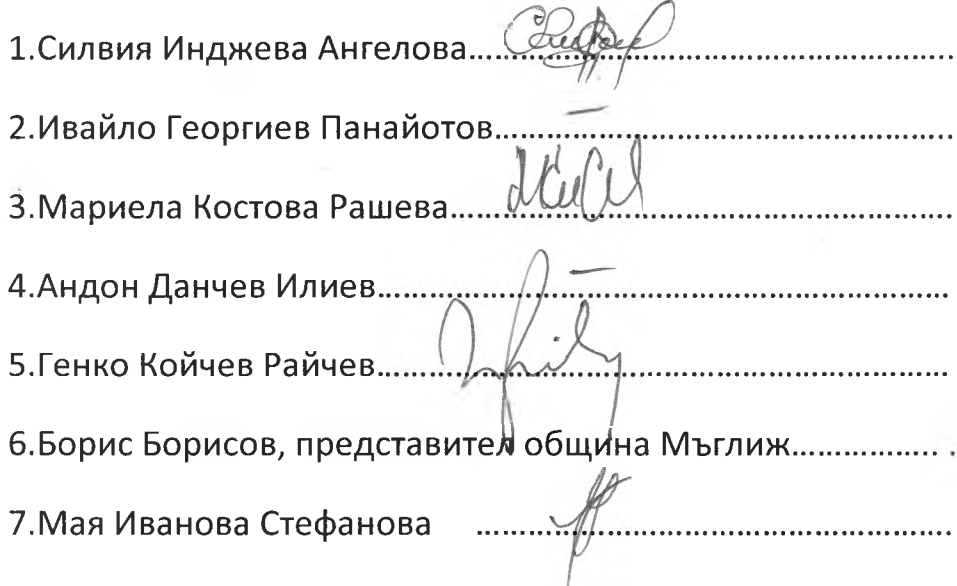 1.Силвия Инджева Ангелова......................................................
2.Ивайло Георгиев Панайотов...................................................
3.Мариела Костова Рашева........................................................
4.Андон Данчев Илиев...............................................................
5.Генко Койчев Райчев...............................................................
6.Борис Борисов, представител община Мъглиж................ .
7.Мая Иванова Стефанова .....................................................